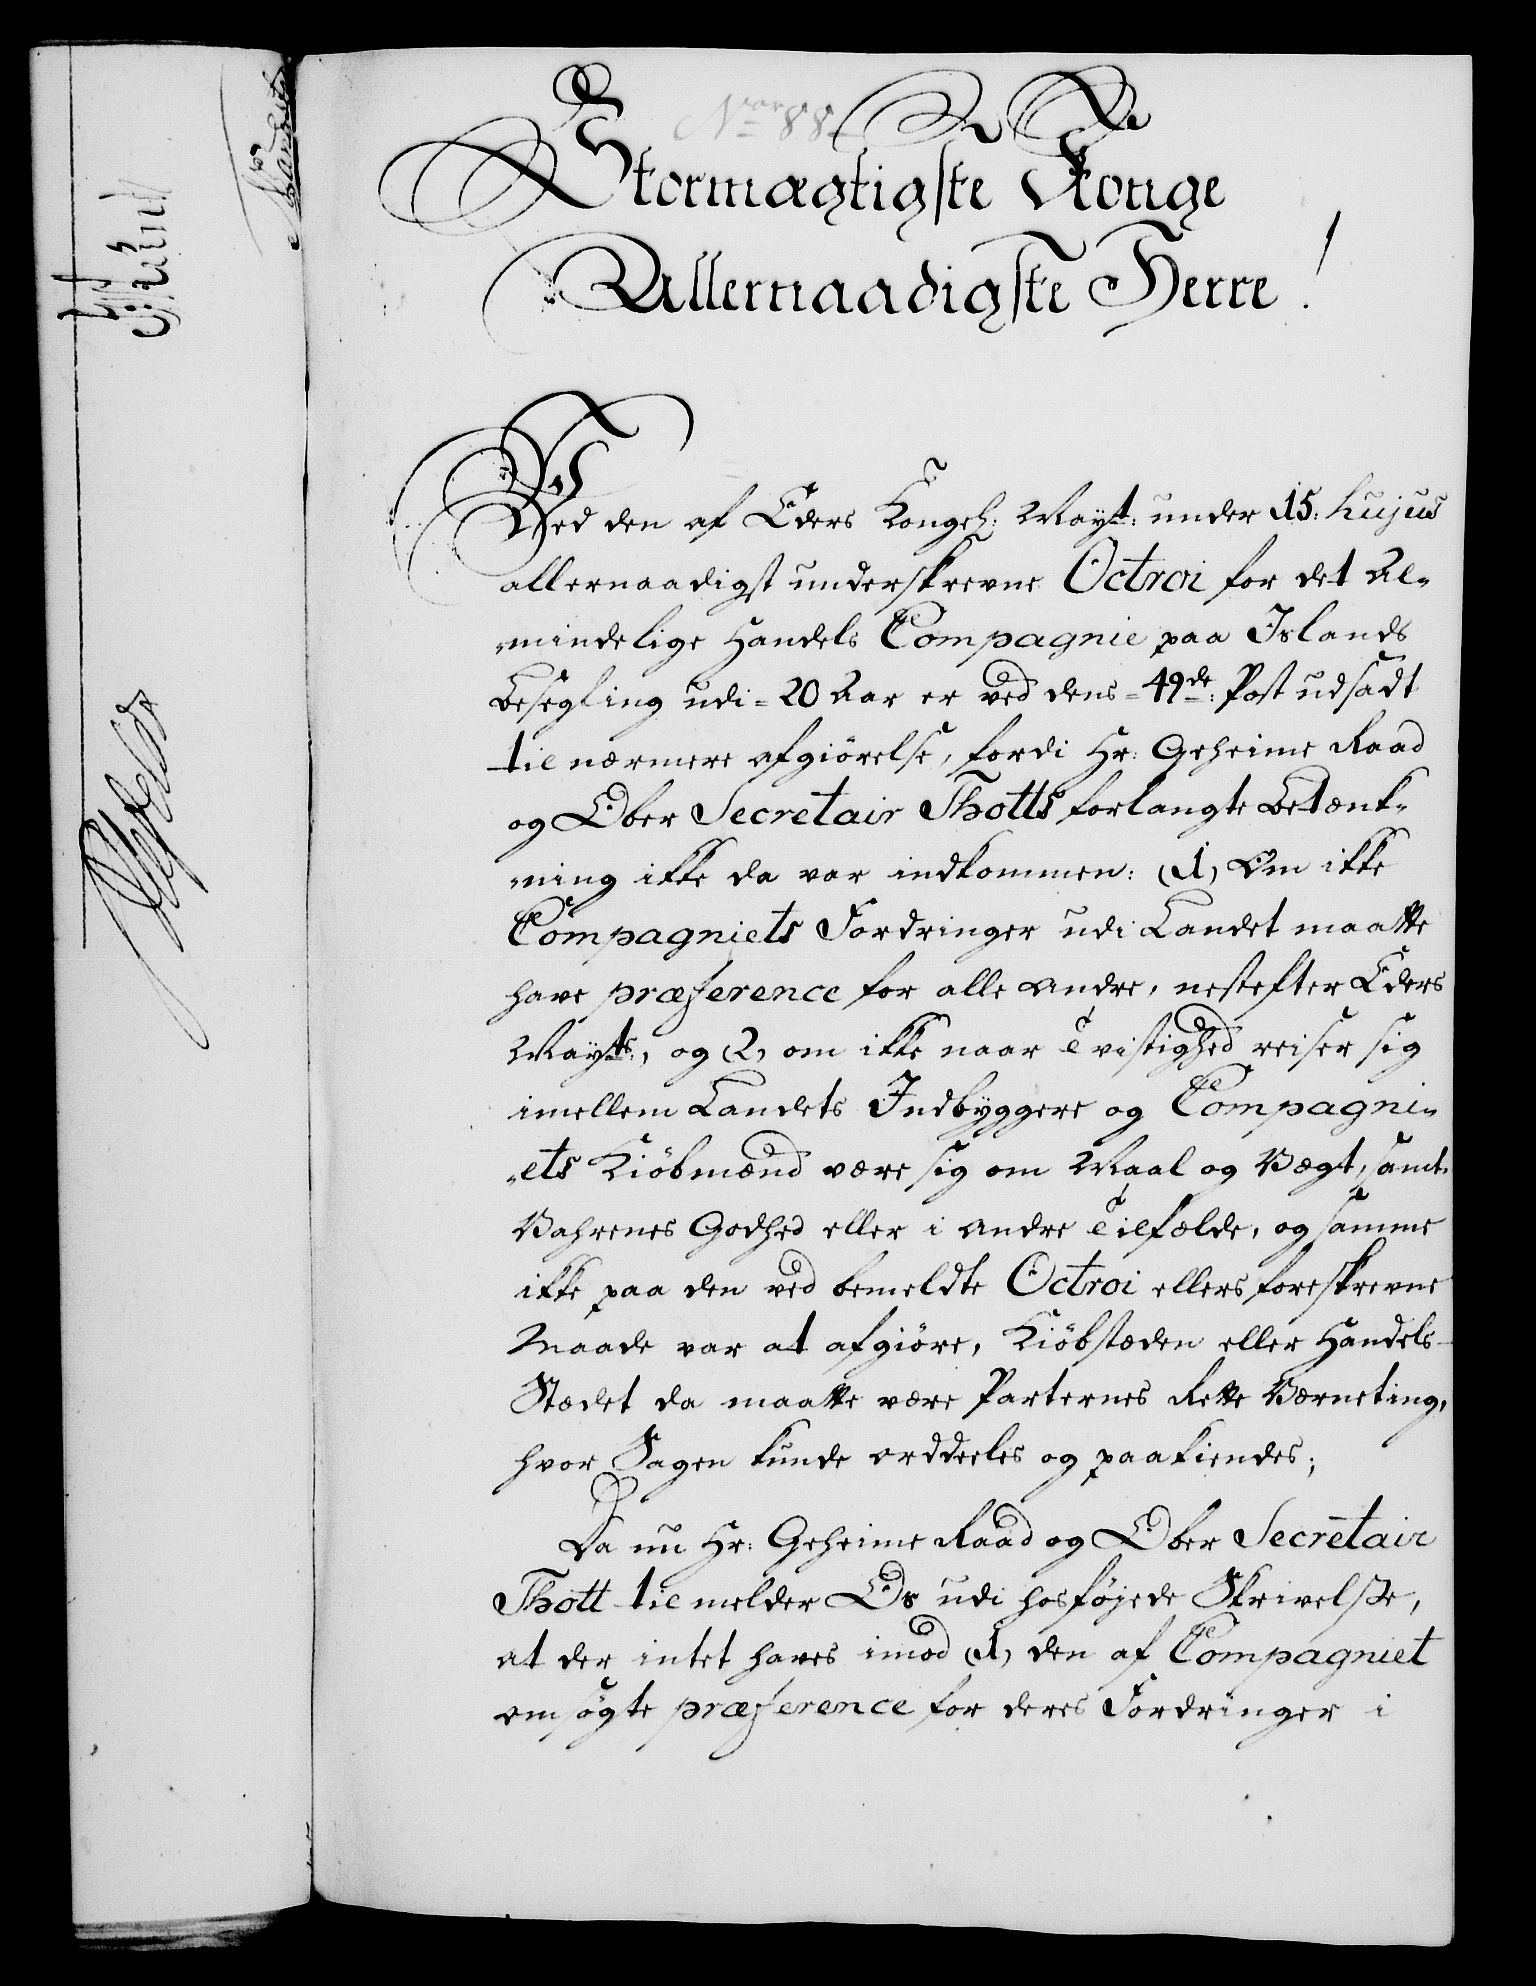 Nor 88
Stormægtigste Konge
Allernaadigste Herre!
Ved den af Eders Kongel: Mayt: under 15: hujus
allernaadigst underskrevne Octroi for det Al-
mindelige Handels Compagnie paa Islands
Besegling udi = 20 Aar er ved dens = 49de: Post udsadt
til nærmere afgiörelse, fordi Hr: Geheime Raad
og Ober Secretair Thotts forlangte Betænk-
ning ikke da var indkommen: (1) Om ikke
Compagniets Fordringer udi Landet maatte
have præference for alle andre, nestefter Eders
Mayts:, og (2) om ikke naar Tvistighed reiser sig
imellem Landets Indbyggere og Compagni-
ets Kiöbmænd være sig om Maal og Vægt, samt
Vahrenes Godhed eller i andre Tilfælde, og samme
ikke paa den ved bemeldte Octroi ellers foreskrevne
Maade var at afgiöre, Kiöbstæden eller Handels-
Stædet da maatte være Parternes Rette Værneting,
hvor Sagen kunde orddeeles og paakiendes;
Da nu Hr: Geheime Raad og Ober Secretair
Thott tilmelder Os udi hosföjede Skrivelse,
at der intet haves imod (1) den af Compagniet
omsögte præference for deres Fordringer i